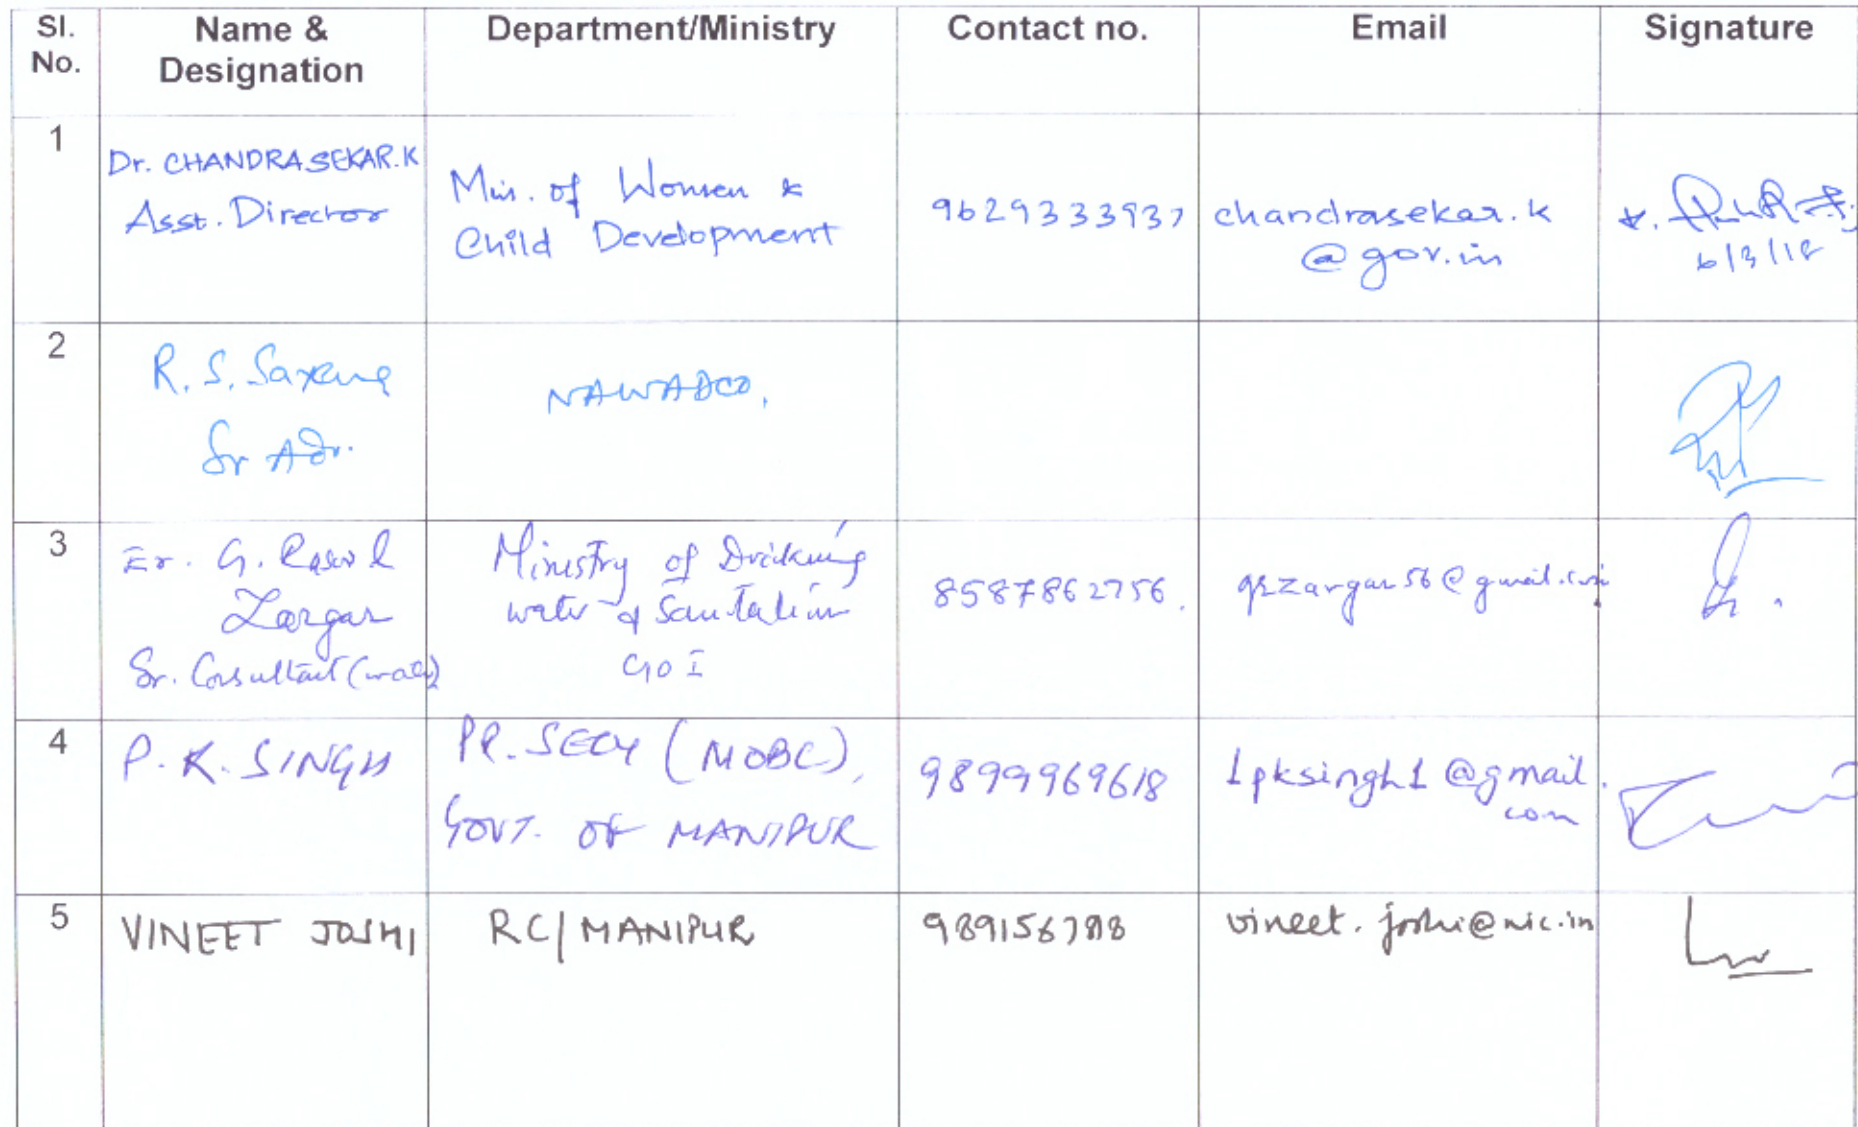 Sl. No. Name & Designation Department/Ministry Contact no. Email Signature
1
Dr. CHANDRASEKAR.K
Asst. Director
Min. of Women &
Child Development
9629333937
chandrasekar.k
@gov.in
6/3/18
2
R. S. Saxena
Sr Adr.
NAWADCO,
3
Er. G. Rasool
Zargar
Sr. Consultant (
Ministry of Drinking
water & Sanitation
GOI
8587862756.
grzargar56@gmail.com
4
P. K. SINGH
PR. SECY (MOBC),
GOVT. OF MANIPUR
9899969618
1pksingh1@gmail.
com
5
VINEET JOSHI
RC/MANIPUR
vineet.joshi@nic.in